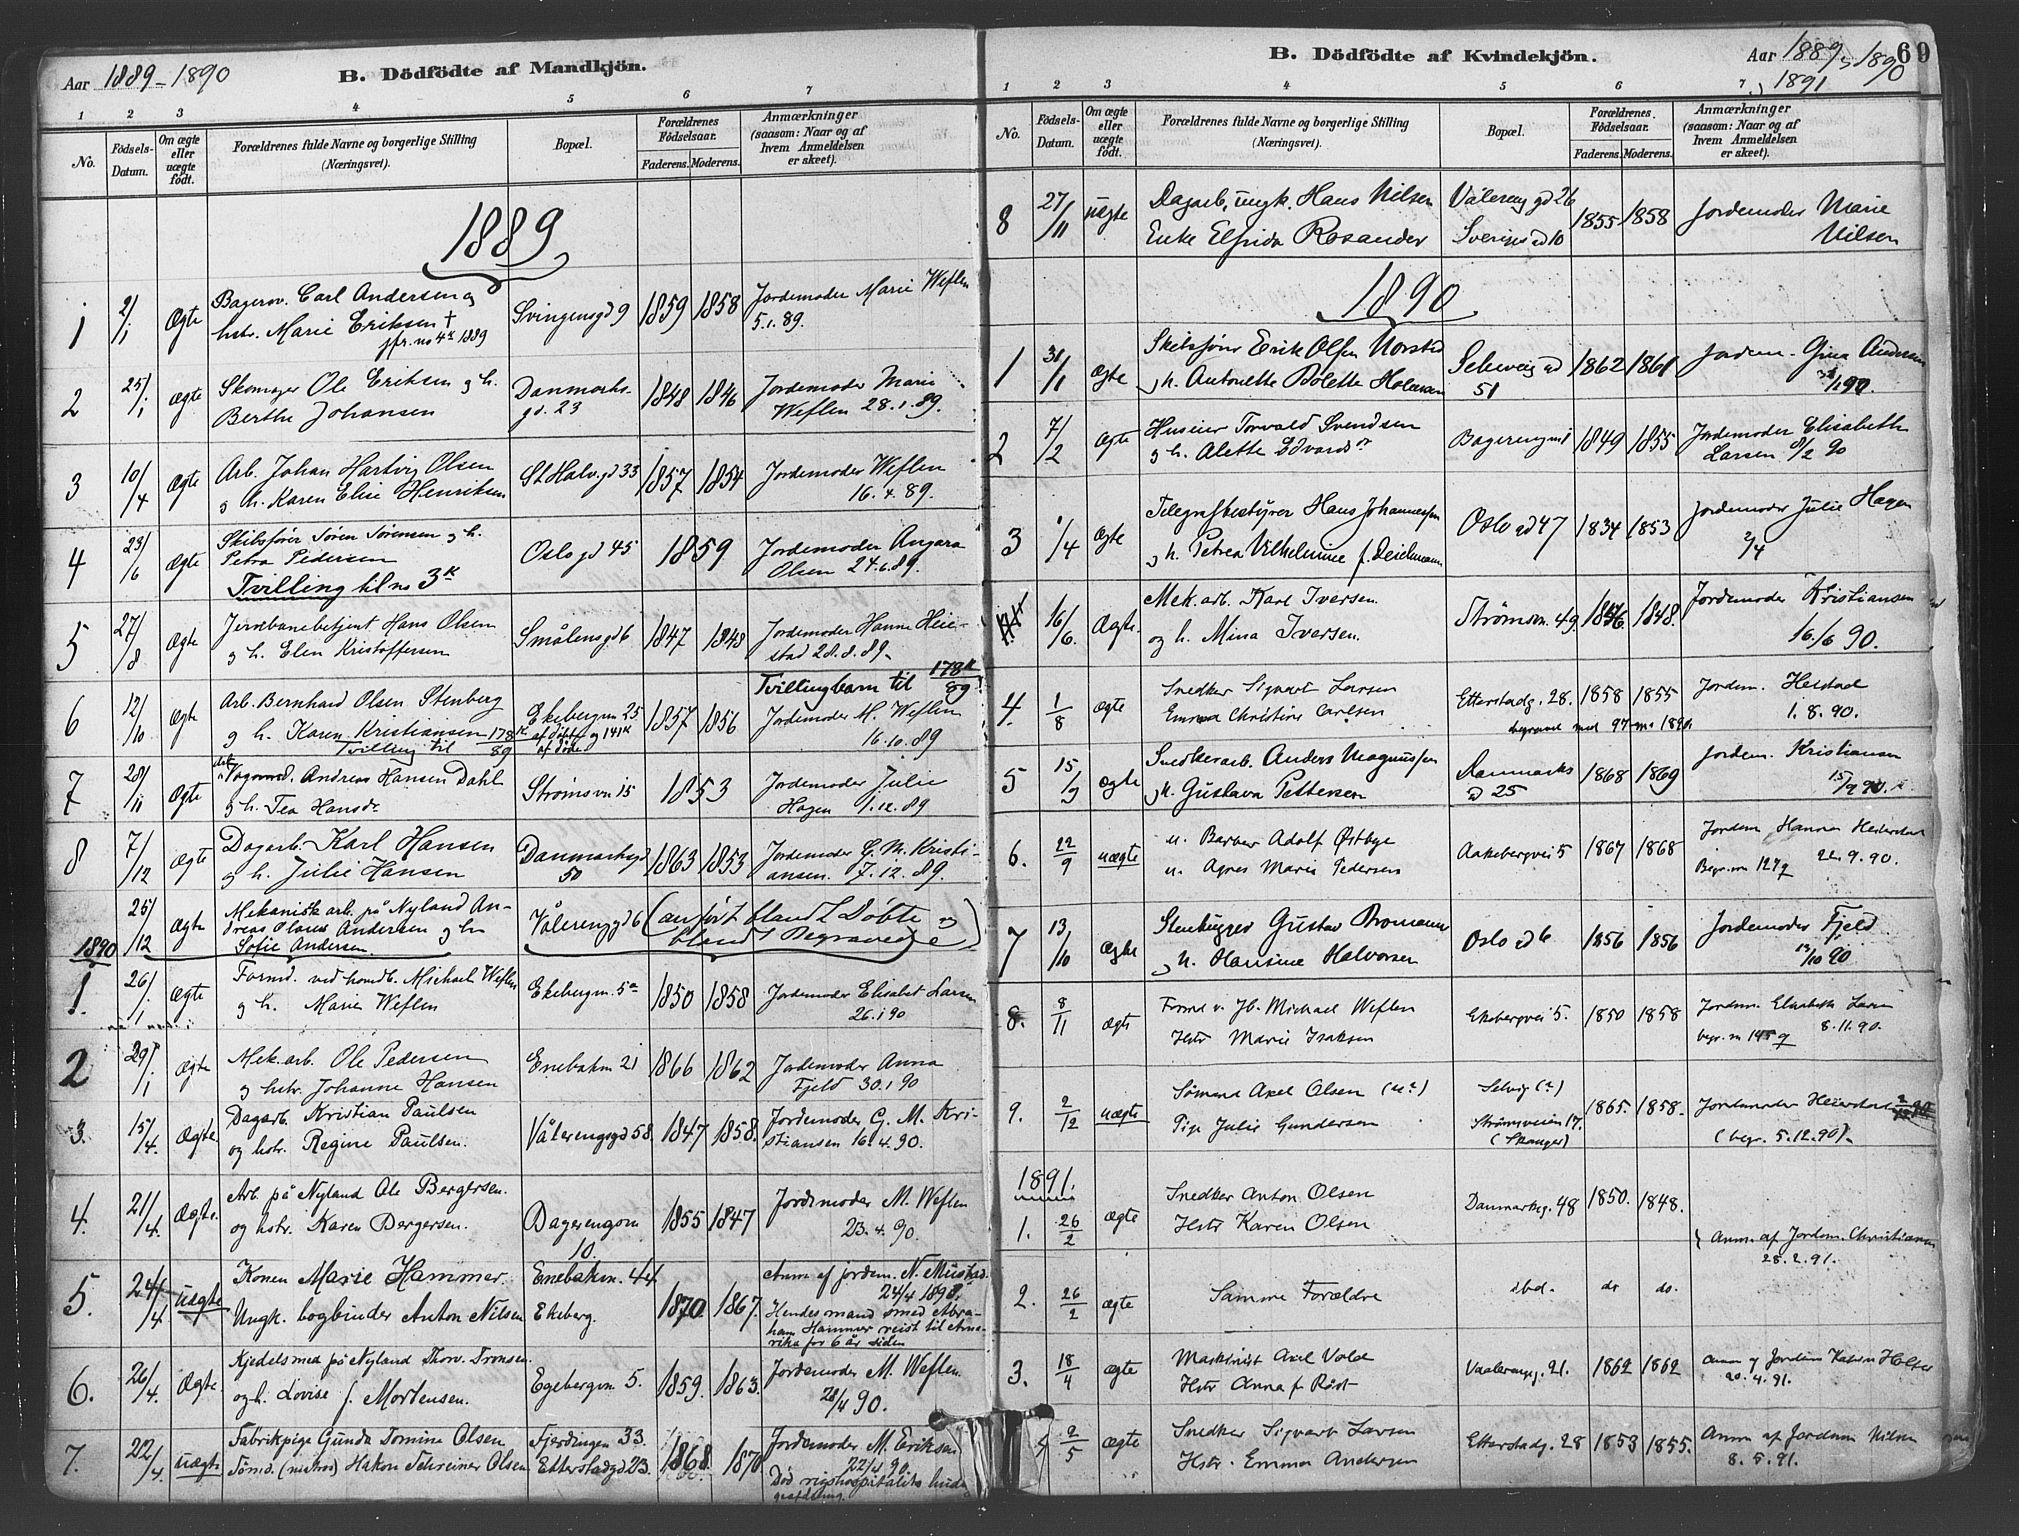 Aar 1889-1890
B. Dödfödte af Mandkjön.
1 2 3 4 5 6 7
No.
Födsels-Datum.
Om ægte eller uægte födt.
Forældrenes fulde Navne og borgerlige Stilling (Næringsvei).
Bopæl.
Forældrenes Födselsaar.
Faderens. Moderens.
Anmærkninger (saasom: Naar og af hvem Anmeldelsen er skeet).
1889
1 2/1 Ægte Bagersv. Carl Andersen og Svingensgd 9 1859 1858 Jordemoder Marie Weflen
hstr. Marie Eriksen † 5.1.89.
jfr. no 4k 1889
2 25/1 Ægte Skomager Ole Eriksen og h. Danmarks- 1848 1846 Jordemoder Marie
Berthe Johansen gd. 23 Weflen 28.1.89.
3 10/4 Ægte Arb. Johan Hartvig Olsen St Halv. gd 33 1857 1854 Jordemoder Weflen
og h. Karen Elise Henriksen 16.4.89.
4 23/6 Ægte Skibsfører Søren Sørensen og h. Oslo gd 45 1859 Jordemoder Angara
Petra Pedersen Olsen 24.6.89.
Tvilling til no 3k
5 27/8 Ægte Jernbanebetjent Hans Olsen Smålensgd 6 1847 1848 Jordemoder Hanna Heie-
og h. Elen Kristoffersen stad 28.8.89.
Tvillingbarn til 178k/89!
6 12/10 Ægte Arb. Bernhard Olsen Stenberg Ekebergvn 25 1857 1856 Jordemoder M. Weflen
og h. Karen Kristiansen af døbte og 141k 16.10.89
Tvilling til 178k/89 af døde
7 28/11 Ægte Vognmd. Andreas Hansen Dahl Strømsvn 15 1853 Jordemoder Julie
og h. Tea Hansdr. Hagen 1.12.89
8 7/12 Ægte Dagarb. Karl Hansen Danmarksgd 1863 1853 Jordemoder G. M. Kristi-
og h. Julie Hansen 50 ansen. 7.12.89.
25/12 Ægte Mekanisk arb. på Nyland An- Vålerenggd 6 (anført blandt Døbte og
dreas Olaus Andersen og h. blandt Begravede)
Sofie Andersen
1890
1. 26/1 Ægte Formd. ved homdb. Michael Weflen Ekebergvn. 5a 1850 1858 Jordemoder Elisabet Larsen
og h. Marie Weflen 26.1 90
2 29/1 Ægte Mek. arb. Ole Pedersen Enebakvn 21 1866 1862 Jordemoder Anna
og hstr. Johanne Hansen Fjeld 30.1 90
3. 15/4. Ægte Dagarb. Kristian Paulsen Vålerengsgd 58. 1847 1858. Jordemoder G. M. Kri-
og hstr. Regine Paulsen. stiansen 16.4.90.
4. 21/4. Ægte. Arb. på Nyland Ole Bergersen. Bagerengvn 1855 1847 Jordemoder M. Weflen
og hstr. Karen Bergersen. 10. 23.4.90.
5. 24/4 uægte Konen Marie Hammer. Enebakvn. 44 1870. 1867. Anm. af jordem. N. Mustad.
24/4 1890.
Ungk. bogbinder Anton Nilsen Ekeberg. Hendes mand smed Abra-
ham Hammer reist til Ame-
rika for 6 år siden
6. 26/4. Ægte. Kjedelsmed på Nyland Thorv. Tronsen. Egebergvn 5. 1859. 1863. Jordemoder M. Weflen.
og h. Lovise f. Mortensen. 28/4 90.
7. 22/4. uægte Fabrikpige Gunda Tomine Olsen Fjerdingen 33. 1868. 1870 Jordemoder M. Eriksen
Tømd. Hakon Schreiner Olsen Etterstadgd 23. 22/4 90.
Død rigshospitalets hud-
afdeling.
B. Dödfödte af Kvindekjön.
Aar 1889, 1890, 1891
69
1 2 3 4 5 6 7
No.
Födsels-Datum.
Om ægte eller uægte födt.
Forældrenes fulde Navne og borgerlige Stilling (Næringsvei).
Bopæl.
Forældrenes Födselsaar.
Faderens. Moderens.
Anmærkninger (saasom: Naar og af hvem Anmeldelsen er skeet).
8 27/11 uægte Dagarb. ungk. Hans Nilsen Vålereng gd 26 1855 1858 Jordemoder Marie
Enke Elfrida Rosander Sverigesgd 10 Nilsen
1890
1 31/1 Ægte Skibsfører Erik Olsen Norstad 51 1862 1861 Jordem. Gina Andersen
og h. Antonette Bolette Holmsen 31/1 90.
2 7/2 Ægte Huseier Torvald Svendsen Bagerengvn 1 1849 1855 Jordemoder Elisabeth
og h. Alette Edvardsdr Larsen 8/2 90
3 1/4 Ægte Telegrafbestyrer Hans Johannessen Oslo gd 47 1834 1853 Jordemoder Julie Hagen
og h. Petrea Vilhelmine f. Deichmann 2/4
16/6. Ægte. Mek. arb. Karl Iversen. Strømsvn. 49. 1846. 1848. Jordemoder Kristiansen
og h. Mina Iversen. 16/6 90.
4. 1/8 ægte Snedker Sigvart Larsen Etterstadg. 28. 1858 1855 Jordem. Heistad
Emma Christine Carlsen begravet med 97 m. 1890. 1.8.90.
5 15/9 Ægte Snedkerarb. Anders Magnussen Danmarks 1868 1869 Jordem. Kristiansen
og h. Gustava Pettersen gd 25 15/9 90.
6. 22/9 uægte u. Barber Adolf Østbye Aakebergvei 5 1867 1868 Jordem Hanna Heierstad
u. Agnes Marie Pedersen Begr. no 127 q 22.9.90.
7 13/10 Ægte Stenhugger Gustav Bromann Oslo gd 6 1856 1856 Jordemoder Fjeld
og h. Hansine Halvorsen 13/10 90
8. 8/11 ægte Formd v. Jb. Michael Weflen Ekebergvei 5. 1850 1858 Jordem. Elisabeth Larsen
Hstr Marie Isaksen begr. no 145 q 8.11.90.
9. 2/12 uægte Sømand Axel Olsen (u?) Selvig (?) 1865. 1858. Jordemoder Heierstad 2/12 90
Pige Julie Gundersen Strømsveien 17. (begr. 5.12.90).
(Skanger)
1891.
1. 26/2 ægte Snedker Anton Olsen Danmarksg. 48 1850. 1848.
Hstr Karen Olsen } Anm. af Jordem. Christiansen
28.2.91.
2. 26/2 ægte Samme Forældre ibd. do do.
3. 18/4 ægte Maskinist Axel Vold Vaalerengg. 21. 1862 1862 Anm af Jordem Katrine Holst
Hstr Anna f. Röst 20.4.91.
4 2/5 ægte Snedker Sigvart Larsen Etterstadg. 28 1853 1855. Anm af Jordem Nilsen
Hstr. Emma Andersen 8.5.91.